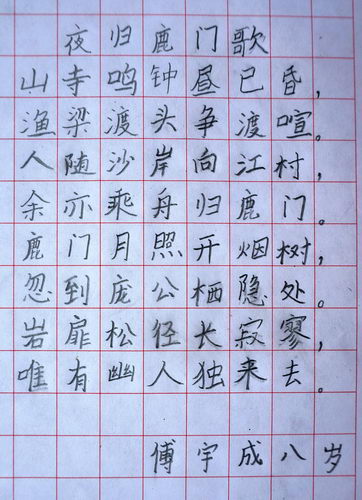 夜归鹿门歌
山寺鸣钟昼已昏，
渔梁渡头争渡喧。
人随沙岸向江村，
余亦乘舟归鹿门。
鹿门月照开烟树，
忽到庞公栖隐处。
岩扉松径长寂寥，
唯有幽人独来去。
傅宇成八岁